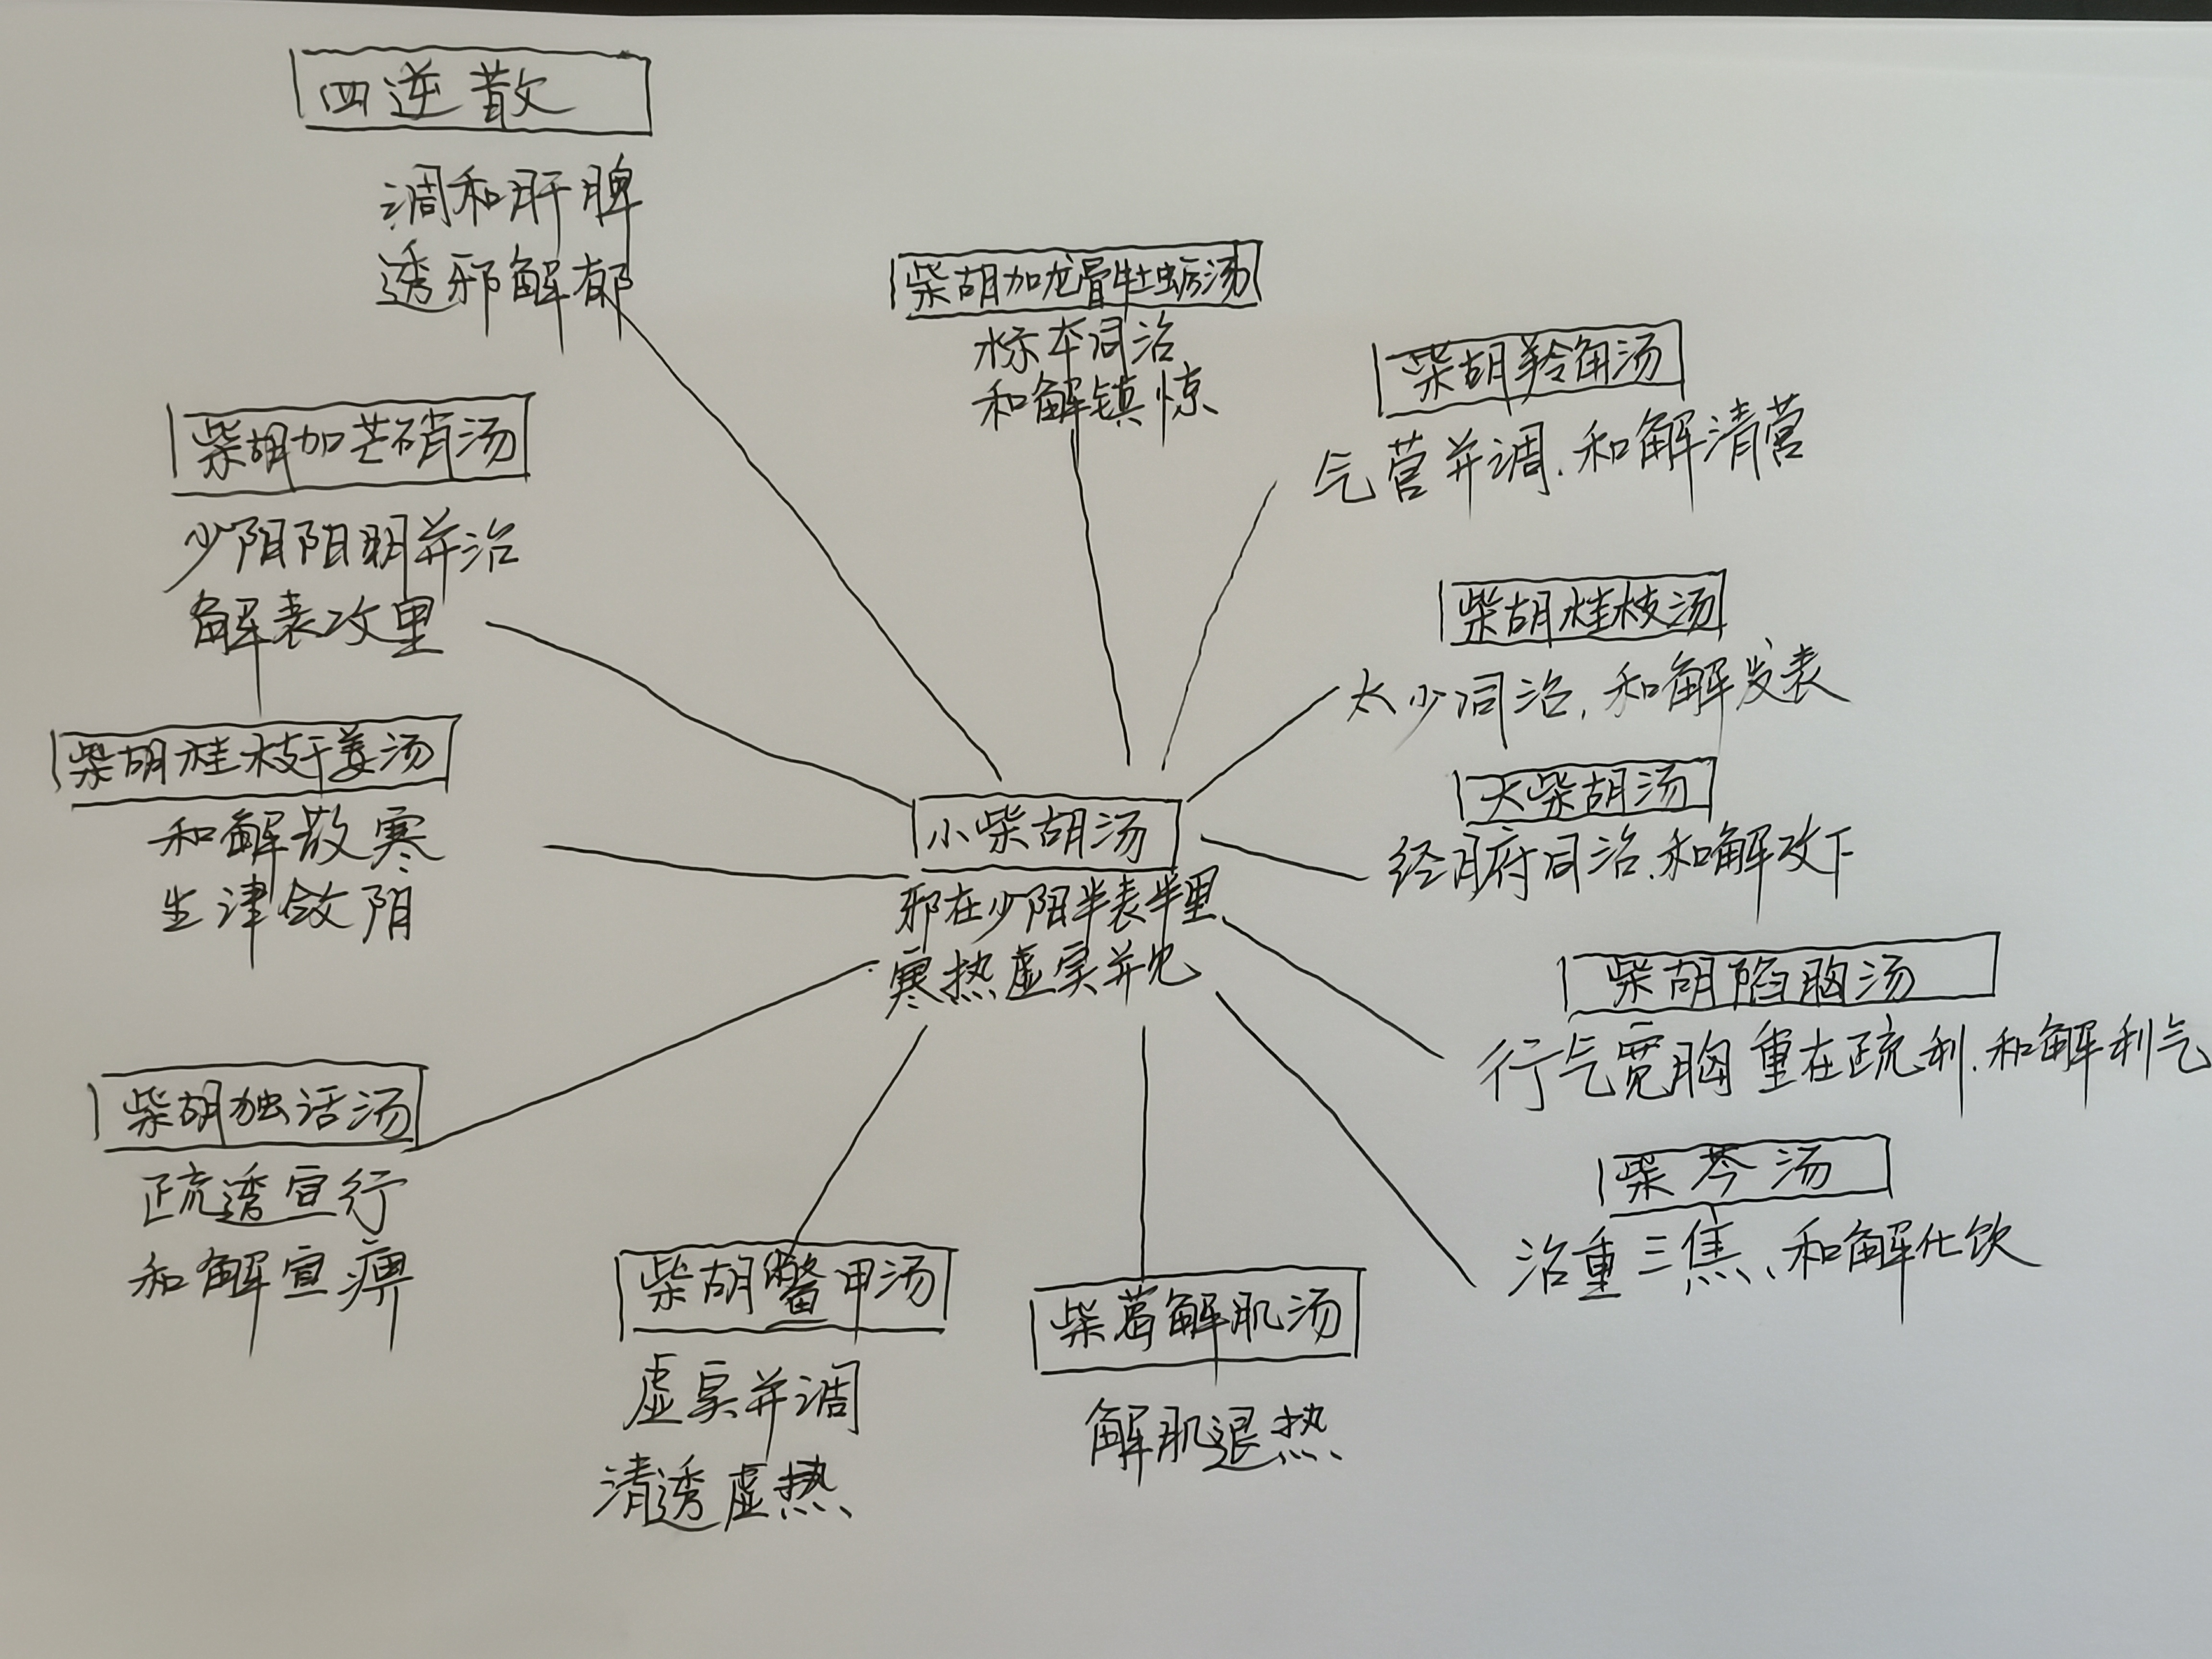 四逆散
调和肝脾
透邪解郁
柴胡加龙骨牡蛎汤
标本同治
和解镇惊
柴胡羚角汤
气营并调.和解清营
柴胡加芒硝汤
少阳阳明并治
解表攻里
柴胡桂枝汤
太少同治,和解发表
柴胡桂枝干姜汤
和解散寒
生津敛阴
大柴胡汤
经腑同治.和解攻下
小柴胡汤
邪在少阳半表半里
寒热虚实并见
柴胡陷胸汤
行气宽胸 重在疏利.和解利气
柴胡独活汤
疏透宣行
和解宣痹
柴芩汤
治重三焦、和解化饮
柴胡鳖甲汤
虚实并调
清透虚热
柴葛解肌汤
解肌退热